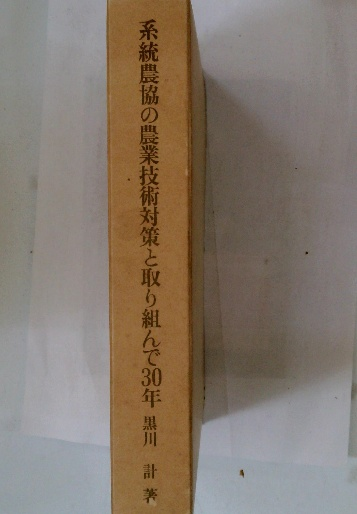 系統農協の農業技術対策と取り組んで30年 黒川 計 著